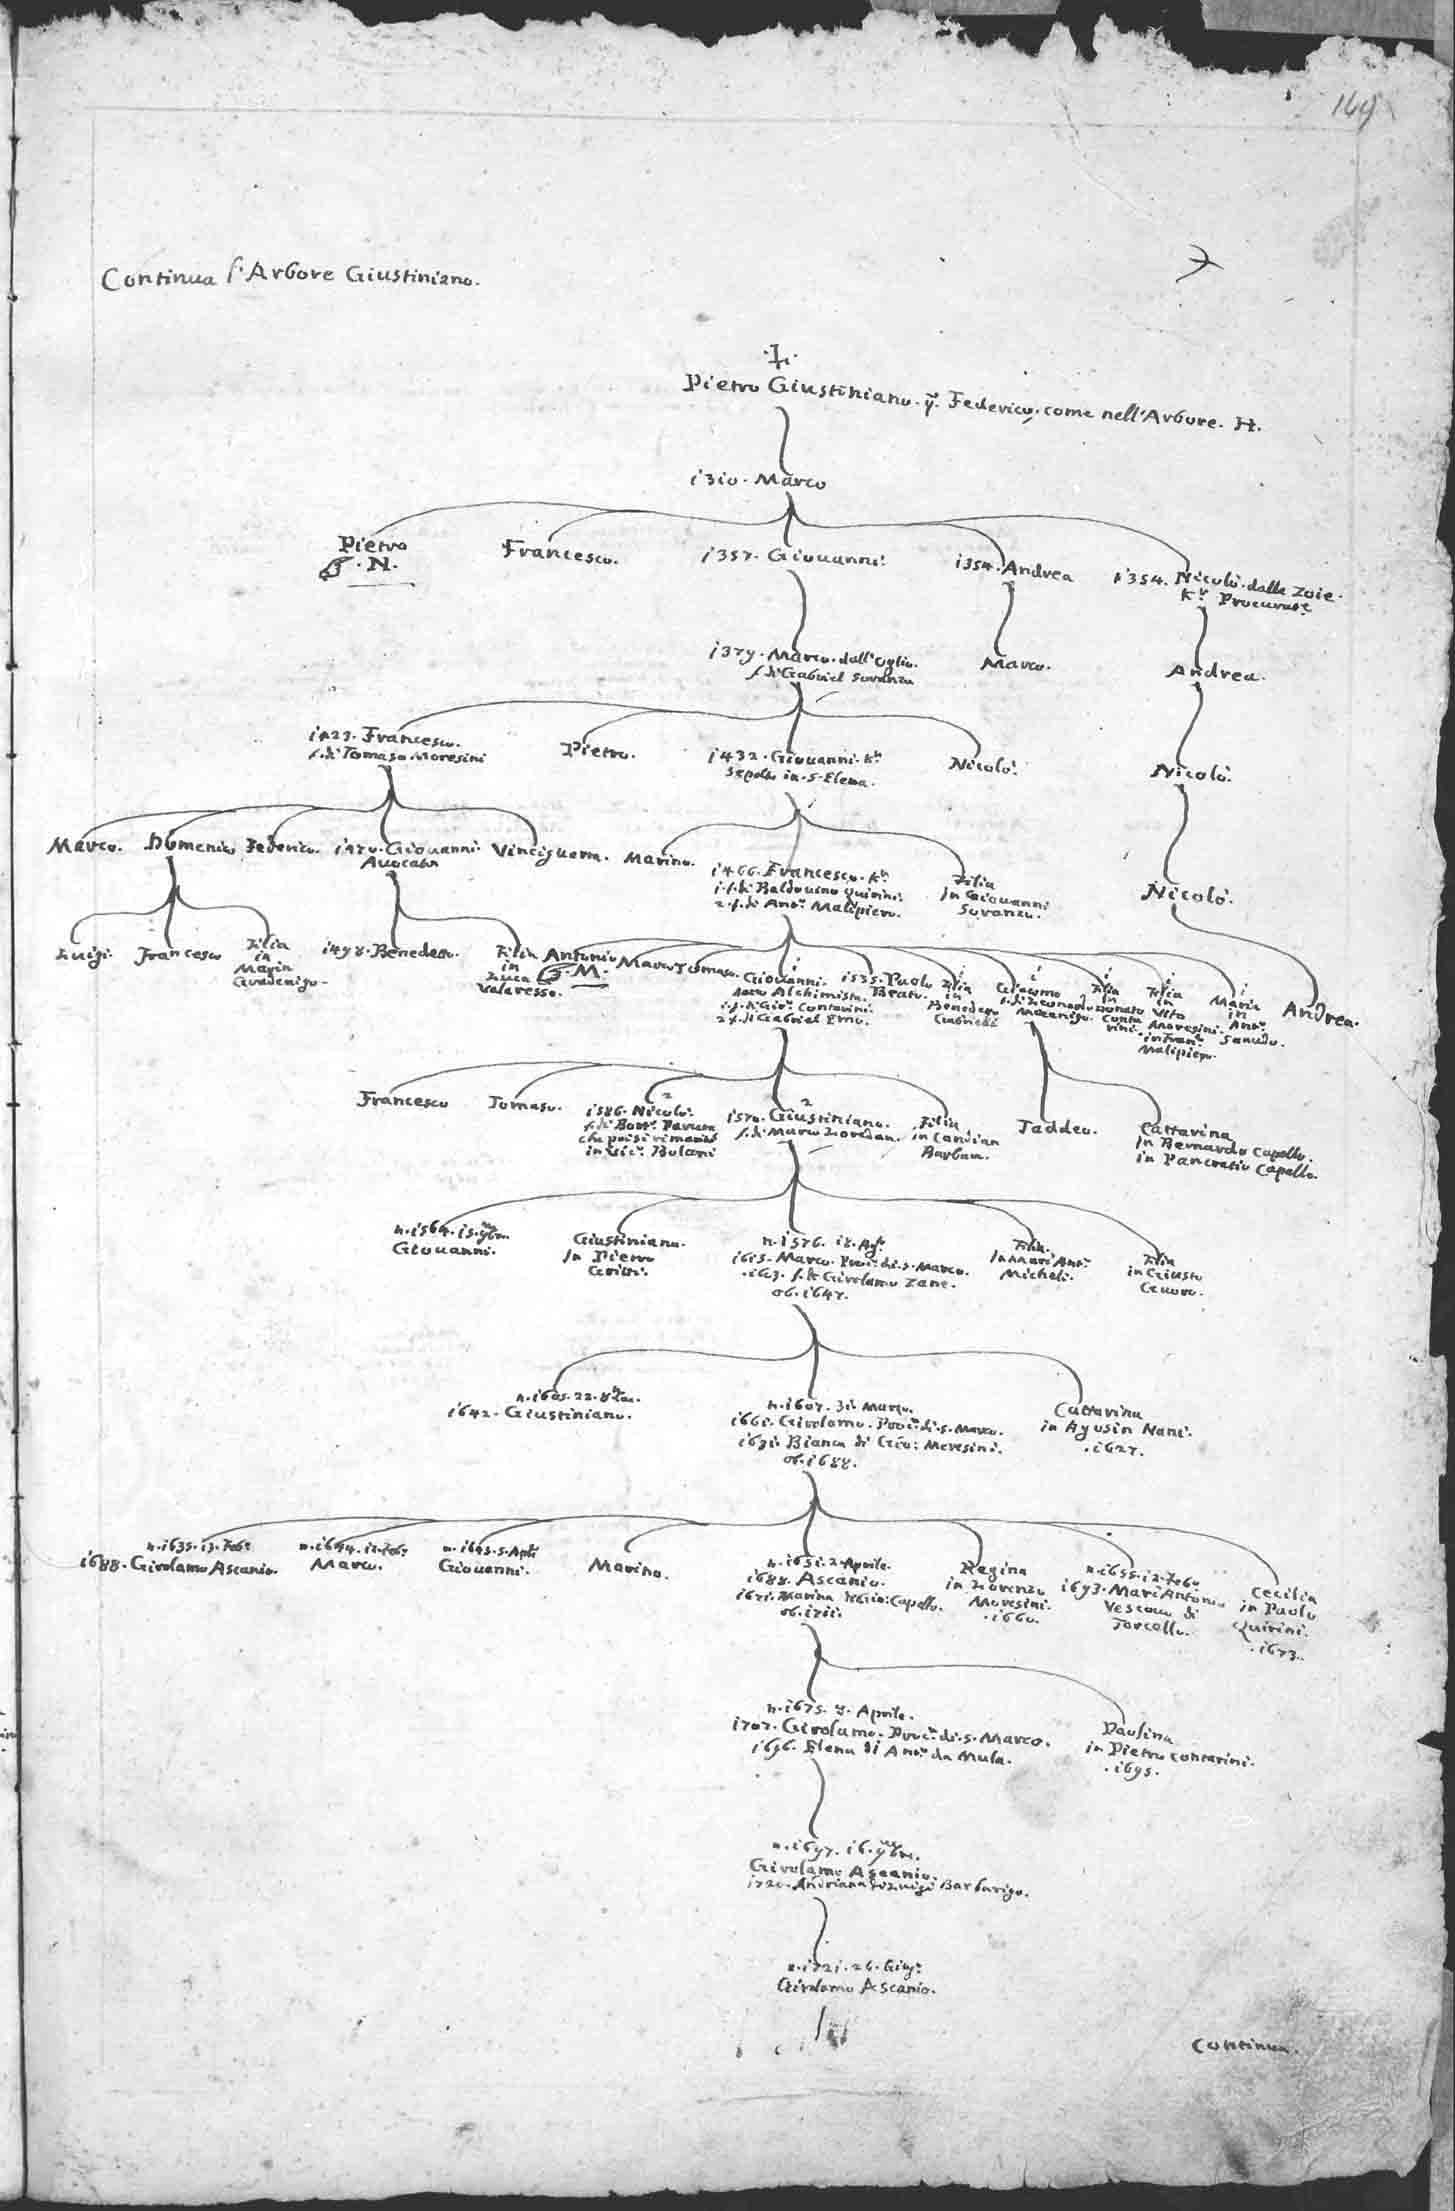 169
Continua l'Arbore Giustiniano.
.L.
Pietro Giustiniano. q. Federico, come nell'Arbore. H.
1310. Marco
Pietro
.N.
Francesco.
1357. Giouanni.
1354. Andrea
1354. Nicolò. dalle Zoie.
Kr. Procurat.
1379. Marco. dall'Oglio.
f. di Gabriel Soranzo
Marco.
Andrea.
1423. Francesco.
f. di Tomaso Moresini
Pietro.
1432. Giouanni. Kr.
Sepolto in. S. Elena.
Nicolò.
Nicolò.
Marco.
Domenico
Federico.
1470. Giouanni.
Auocato
Vinciguerra.
Marino.
1466. Francesco. Kr.
1. f. di Baldouino Quirini.
2. f. di Ant. Malipiero.
Filia
in Giouanni
Soranzo.
Nicolò.
Luigi.
Francesco
Filia
in
Marin
Gradenigo.
1498. Benedetto.
Filia
in
Luca
Valaresso.
Antonio
.M.
Marco
Tomaso.
Giouanni.
detto Alchimista.
1. f. di Gir. Contarini.
2. f. di Gabriel Emo.
1535. Paolo
Beato.
Filia
in
Benedetto
Gabrieli
Giacomo
f. di Leonardo
Mocenigo.
Filia
in
Donato
Conta
rini.
Filia
in
Vito
Moresini.
in Fran.
Malipiero.
Maria
in
Ant.
Sanudo.
Andrea.
Francesco
Tomaso.
2
1586. Nicolò.
f. di Bort. Paruta
che poi si rimaritò
in Vic. Bolani
2
1570. Giustiniano.
f. di Marco Loredan.
Filia
in Candian
Barbaro.
Taddeo.
Cattarina
in Bernardo Capello.
in Pancratio Capello.
n. 1564. 15. 9bre.
Giouanni.
Giustiniana.
in Pietro
Gritti.
n. 1576. 18. Ag.
1615. Marco. Proc. di. S. Marco.
f. di Girolamo Zane.
ob. 1647.
Filia.
in Marc'Ant.
Micheli.
Filia
in Giusto
Guoro.
n. 1605. 22.
1642. Giustiniano.
n. 1607. 31. Marzo.
1661. Girolamo. Proc. di. S. Marco.
1631. Bianca di Gio: Moresini.
ob. 1688.
Cattarina
in Agustin Nani.
.1627.
n. 1635. 13. Feb.
1688. Girolamo Ascanio.
n. 1644. 12. Feb.
Marco.
n. 1645. 5. Apl.
Giouanni.
Marino.
n. 1651. 2. Aprile.
1688. Ascanio.
1671. Marina di Gio: Capello.
ob. 1711.
Regina
in Lorenzo
Moresini.
.1660.
n. 1655. 12. Feb.
1693. Marc'Antonio
Vescouo di
Torcello.
Cecilia
in Paolo
Quirini.
.1673.
n. 1675. 9. Aprile.
1707. Girolamo. Proc. di. S. Marco.
1696. Elena di Ant. da Mula.
Paulina
in Pietro Contarini.
.1695.
n. 1697. 16. 9bre.
Girolamo Ascanio.
1720. Andriana di Luigi Barbarigo.
n. 1721. 26. Giug.
Girolamo Ascanio.
Continua.